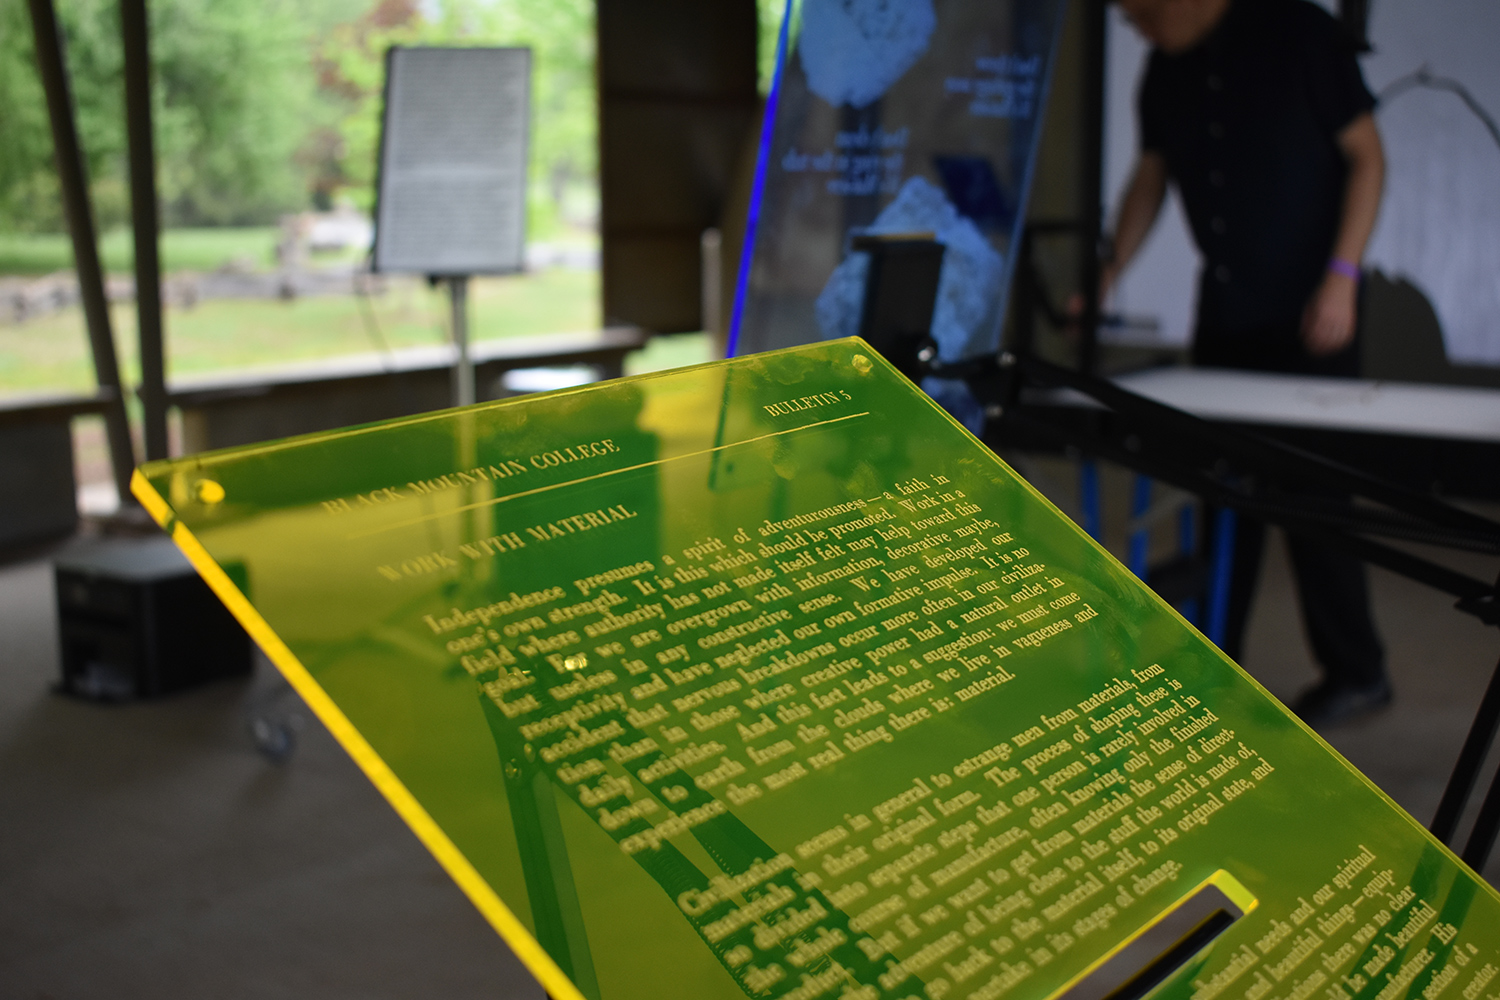 BLACK MOUNTAIN COLLEGE BULLETIN 5
WORK WITH MATERIAL
Independence presumes a spirit of adventurousness—a faith in
one's own strength. It is this which should be promoted. Work in a
field where authority has not made itself felt may help toward this
goal. For we are overgrown with information, decorative maybe,
but useless in any constructive sense. We have developed our
receptivity and have neglected our own formative impulse. It is no
accident that nervous breakdowns occur more often in our civiliza-
tion than in those where creative power had a natural outlet in
daily activities. And this fact leads to a suggestion: we must come
down to earth from the clouds where we live in vagueness and
experience the most real thing there is: material.
Civilization seems in general to estrange men from materials, from
materials in their original form. The process of shaping these is
so divided into separate steps that one person is rarely involved in
the whole course of manufacture, often knowing only the finished
But if we want to get from materials the sense of direct-
adventure of being close to the stuff the world is made of,
to go back to the material itself, to its original state, and
partake in its stages of change.
needs and our spiritual
and beautiful things—equip-
there was no clear
be made beautiful
His